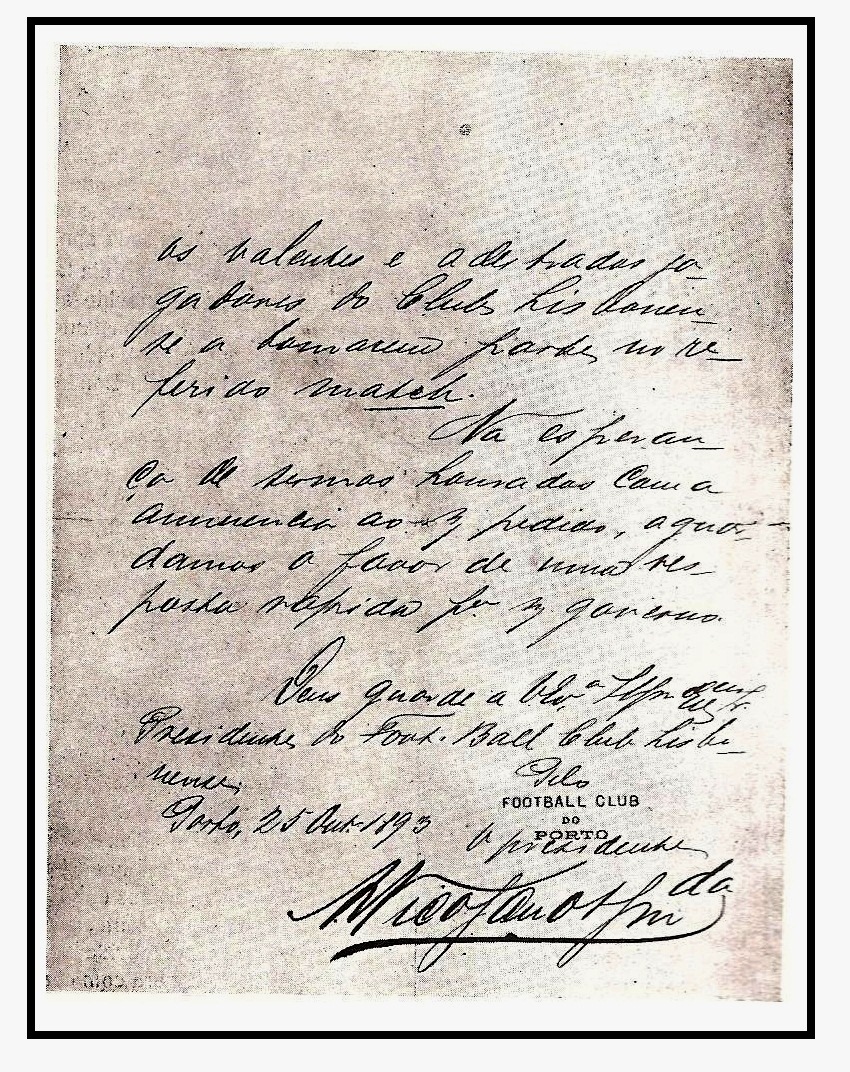 os valentes e adestrados jo-
gadores do Club Lisbonen-
se a tomarem parte no re-
ferido match.
Na esperan-
ça de sermos honrados com a
annuencia ao pedido, aguar-
damos o favor de uma res-
posta rapida pª governo.
Deus guarde a
Presidente do Foot-Ball Club Lisbo-
nense.
Pelo
Porto, 25 Out. 1893
FOOTBALL CLUB
DO
PORTO
O presidente